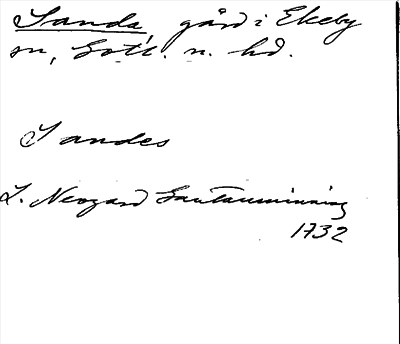 Sanda, gård i Ekeby
sn, Gotl. n. hd.
Sandes
L. Neogard Gautauminning
1732